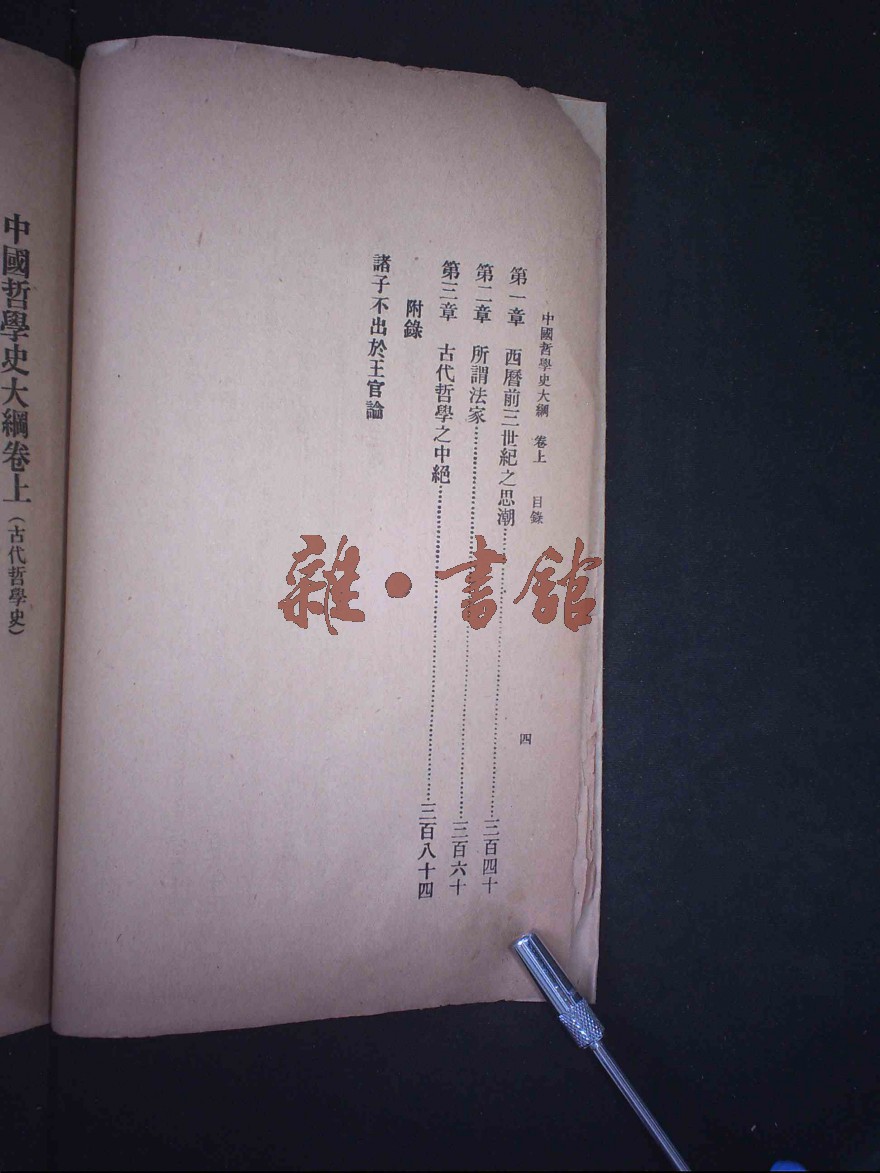 中國哲學史大綱 卷上 目錄 四
第一章 西曆前三世紀之思潮……三百四十
第二章 所謂法家……三百六十
第三章 古代哲學之中絕……三百八十四
附錄
諸子不出於王官論
中國哲學史大綱卷上（古代哲學史）
雜·書館